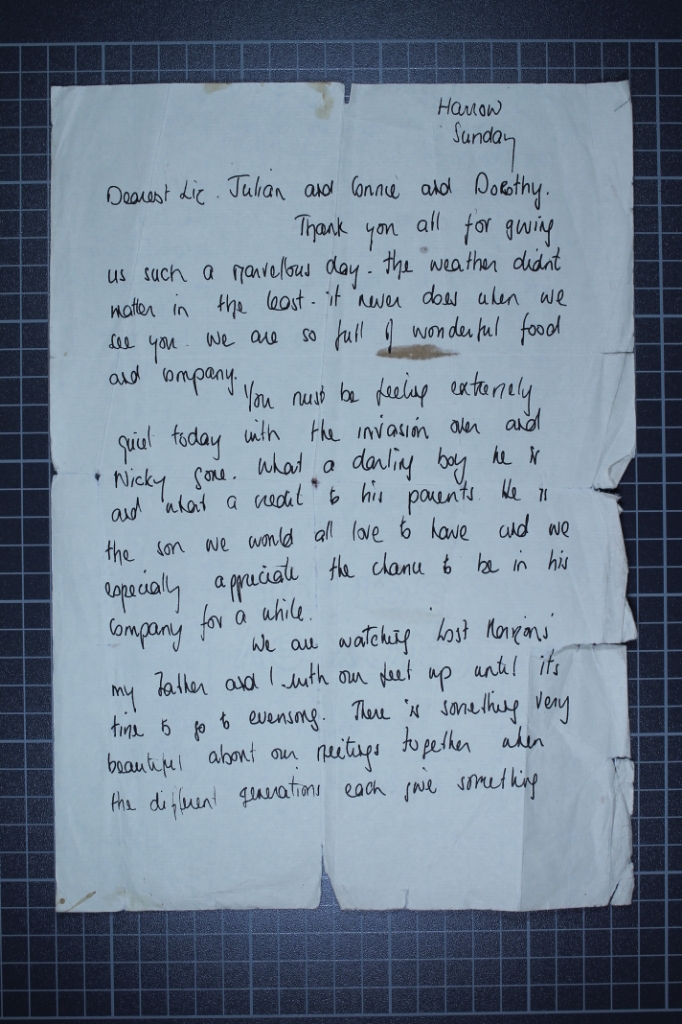 Harrow
Sunday
Dearest Liz. Julian and Connie and Dorothy.
Thank you all for giving
us such a marvellous day. the weather didnt
matter in the least. it never does when we
see you. we are so full of wonderful food
and company.
You must be feeling extremely
quiet today with the invasion over and
Nicky gone. What a darling boy he is
and what a credit to his parents. He is
the son we would all love to have and we
especially appreciate the chance to be in his
company for a while.
We are watching 'Lost Horizons'
my Father and I with our feet up until its
time to go to evensong. There is something very
beautiful about our meetings together when
the different generations each give something